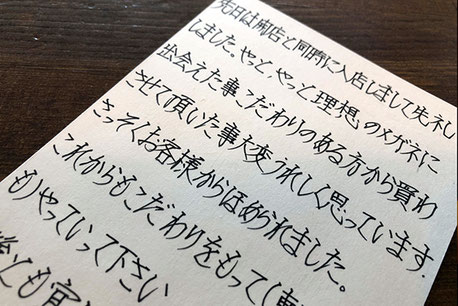 先日は開店と同時に入店しまして失礼し
しました。やっと、やっと理想のメガネに
出会えた事、こだわりのある方から買わ
させて頂いた事大変うれしく思っています.
さっそくお客様からほめられました。
これからもこだわりをもって
もやっていって下さい
も宜